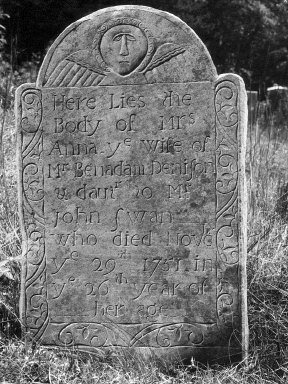 Here Lies the
Body of Mrs
Anna yᵉ wife of
Mr Benadam Denison
& dautʳ to Mr
john Swan
who died Novᵉ
yᵉ 29ᵗʰ 1751 in
yᵉ 26ᵗʰ year of
her age